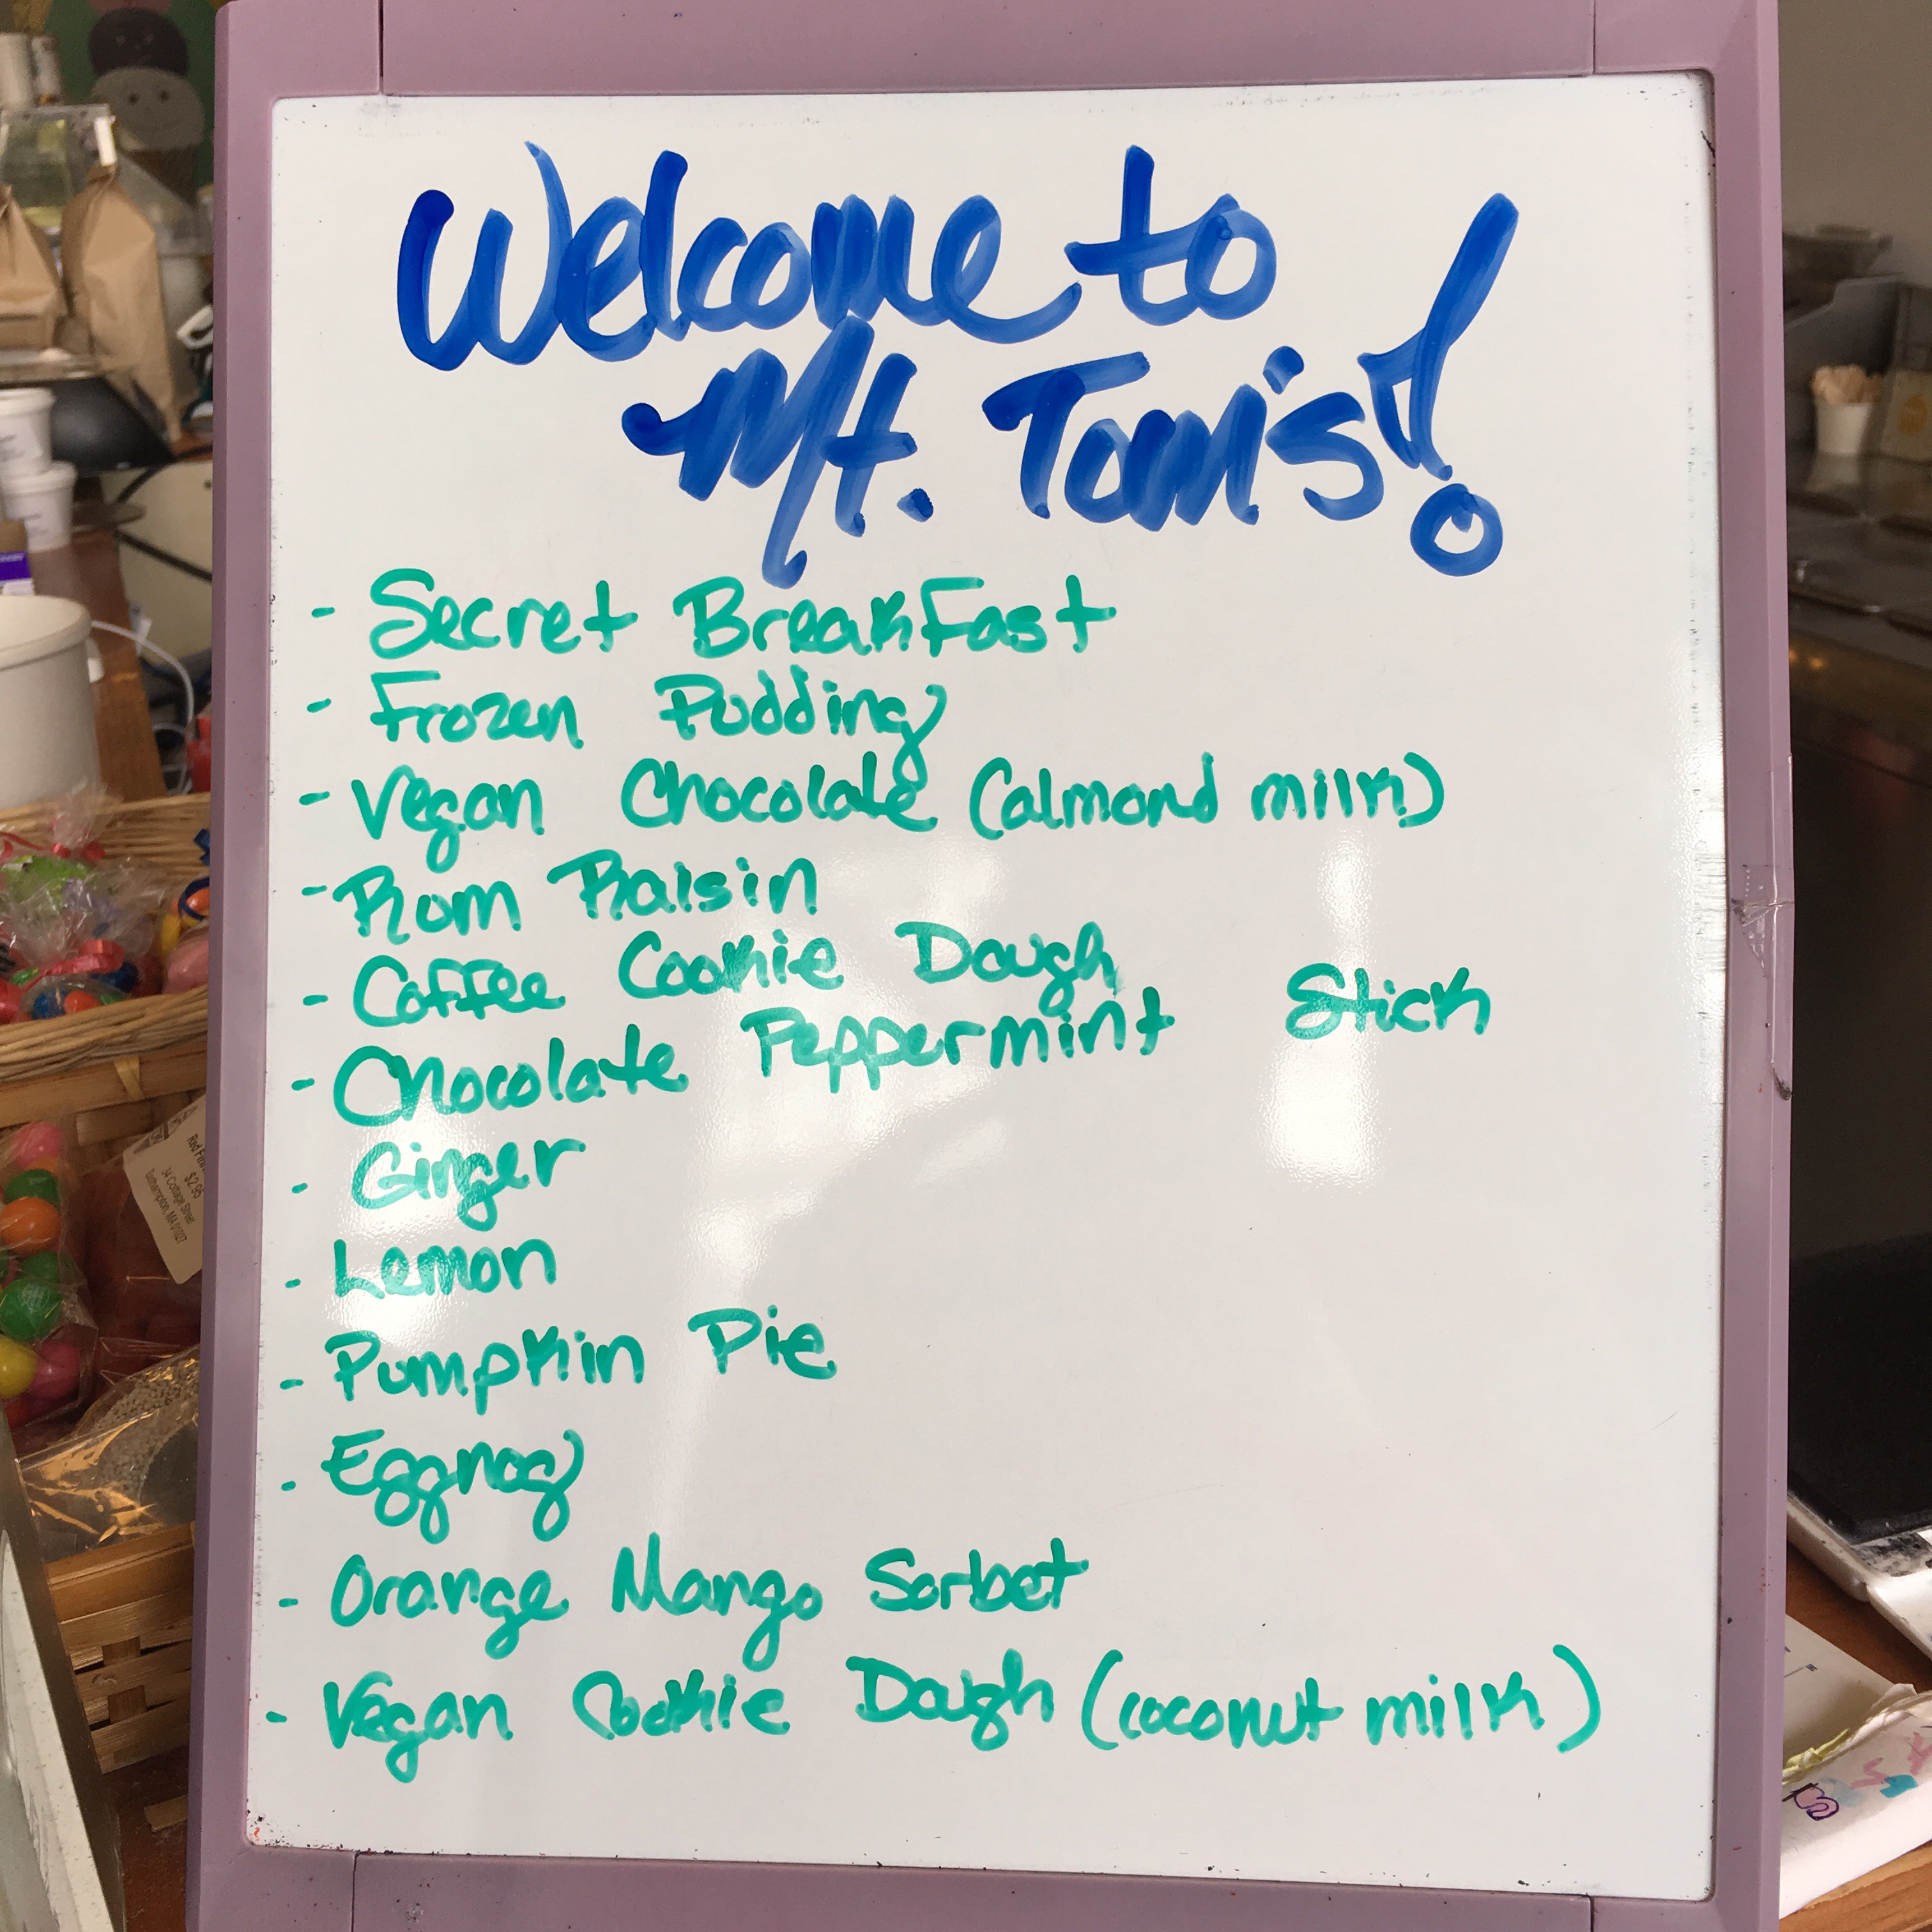 Welcome to
Mt. Tom's!
- Secret BreakFast
- Frozen Pudding
- Vegan Chocolate (almond milk)
- Rum Raisin
- Coffee Cookie Dough
- Chocolate Peppermint Stick
- Ginger
- Lemon
- Pumpkin Pie
- Eggnog
- Orange Mango Sorbet
- Vegan Cookie Dough (coconut milk)
$2.95
34 Cottage Street
Easthampton, MA 01027